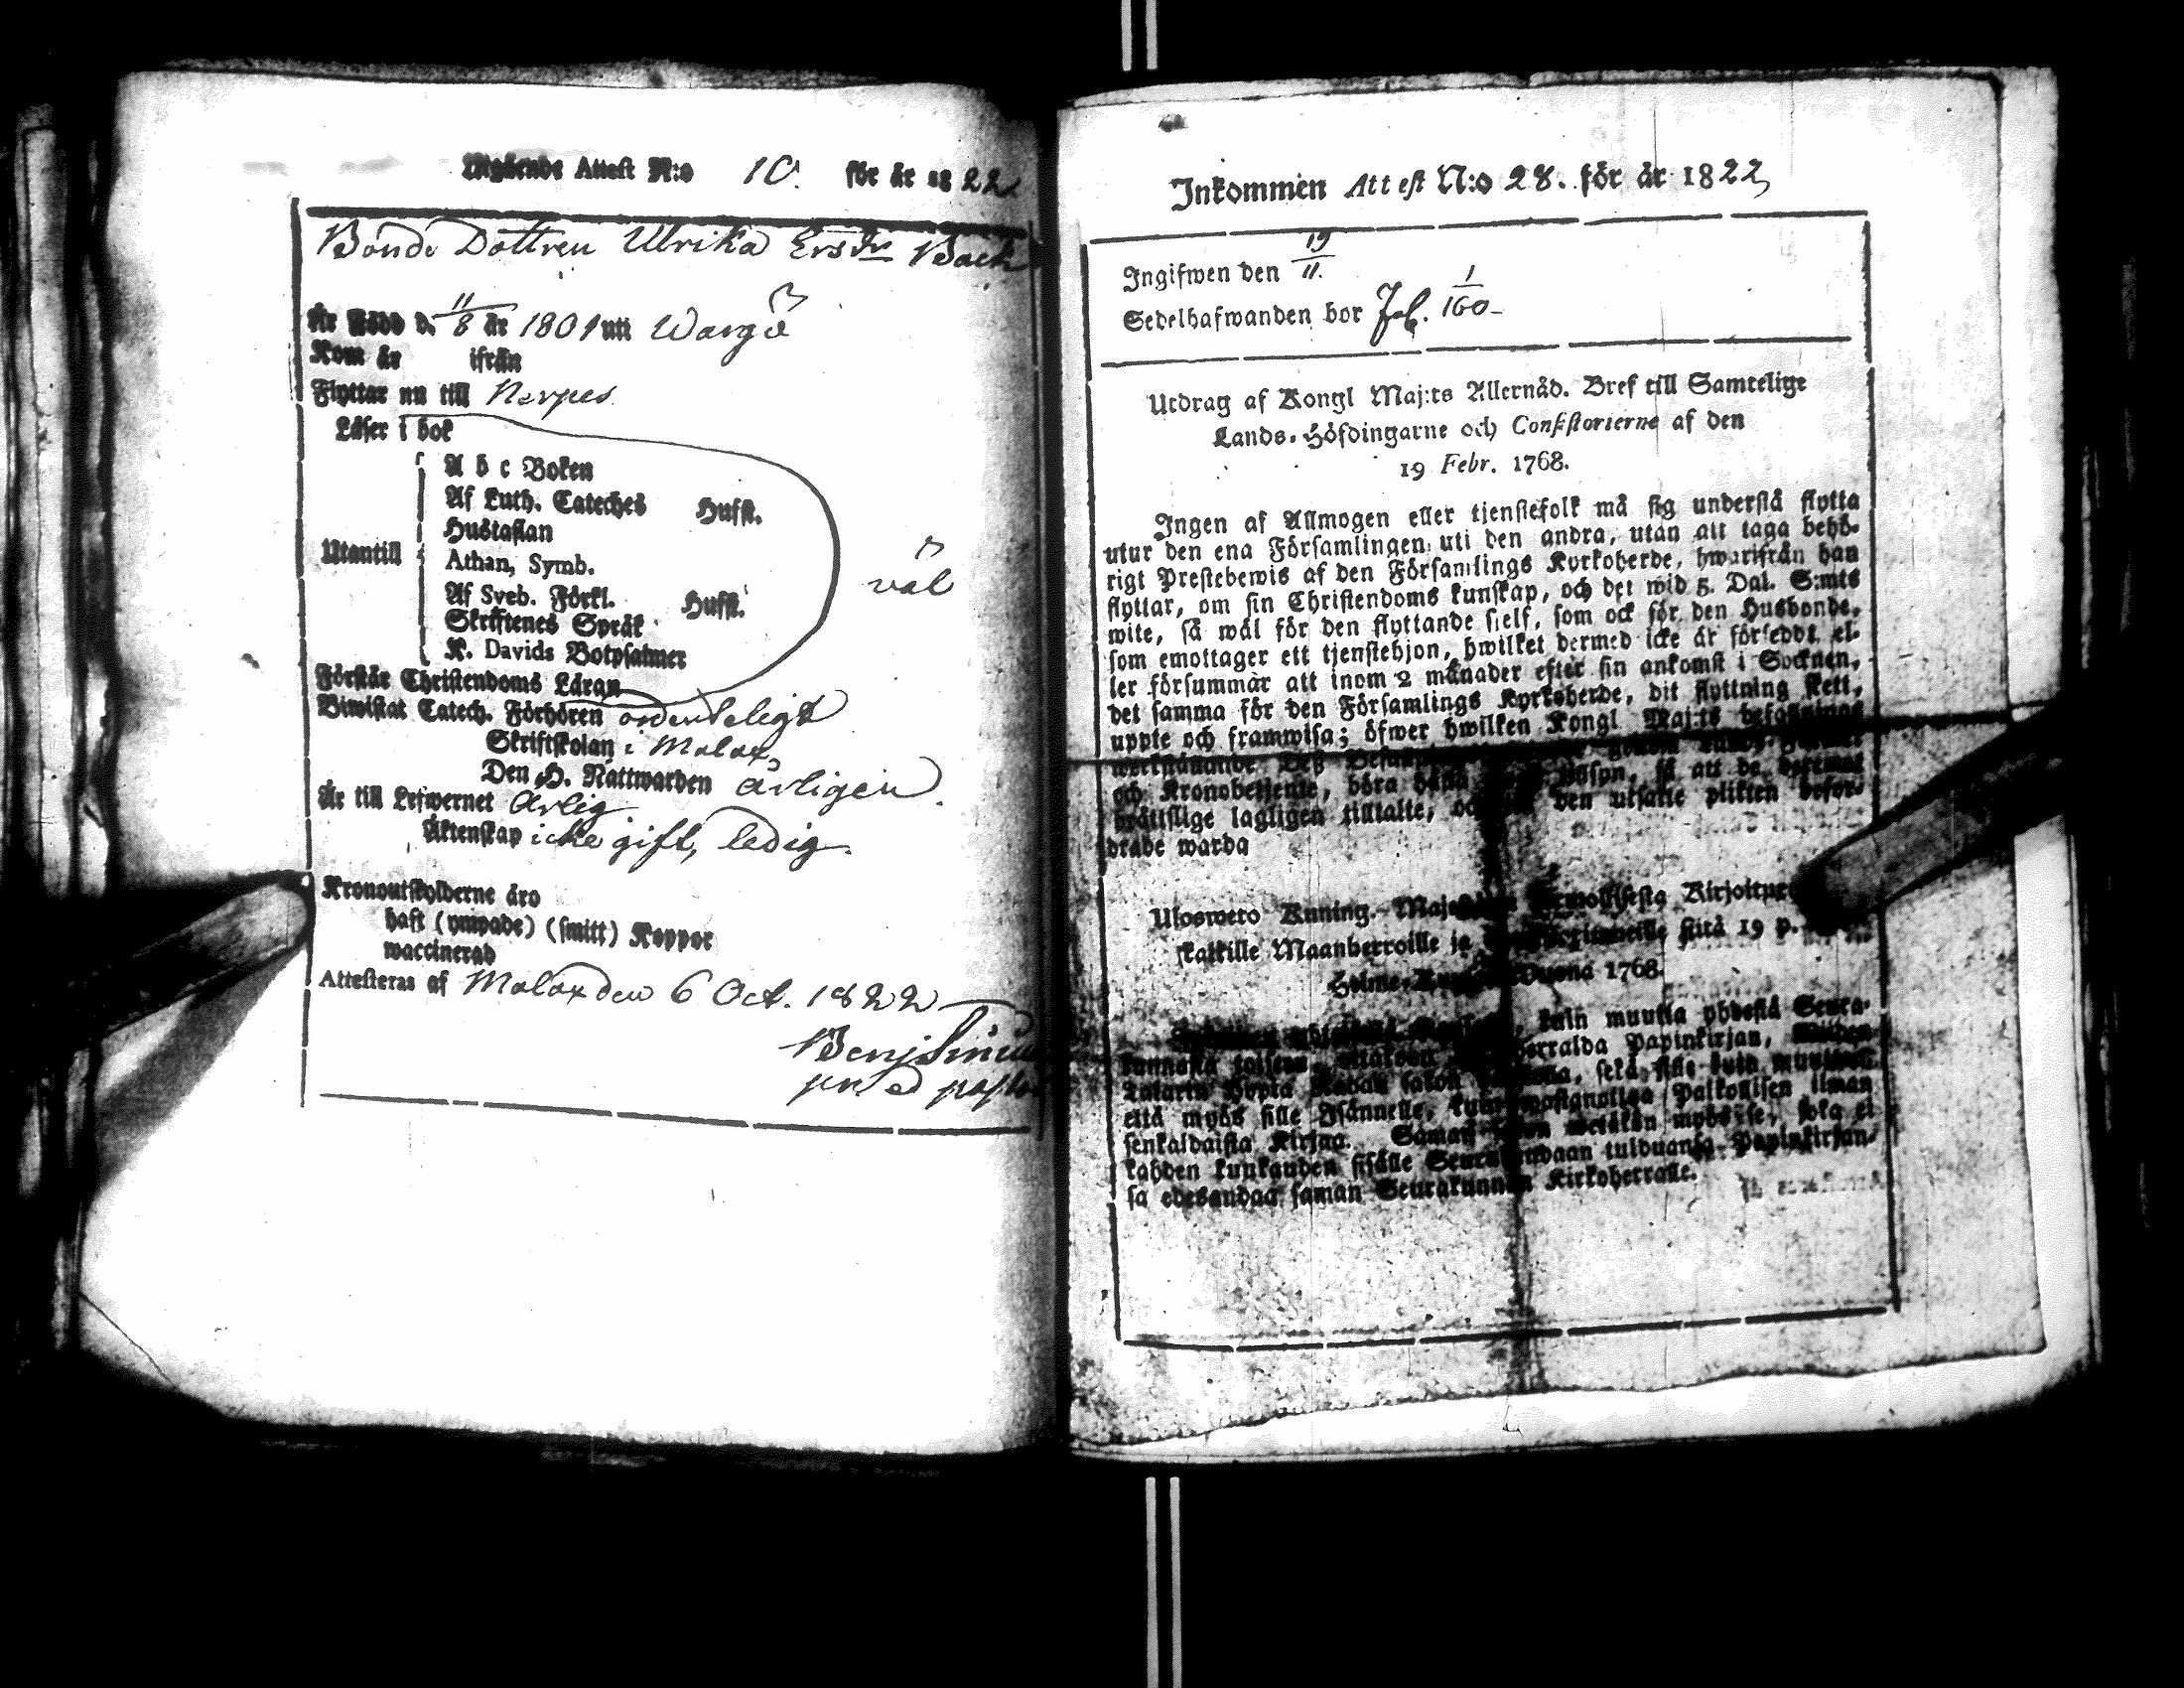 Utgående Attest N:o 10. för år 1822
Bonde Dottren Ulrika Ersdr Back
Är Född d. 11/8 år 1801 uti Wargö
Kom år ifrån
Flyttar nu till Nerpes
Läser i bok
A b c Boken
Af Luth. Cateches Hufst.
Hustaflan
Utantill Athan. Symb.
Af Sveb. Förkl. Hufst.
väl
Skriftenes Språk
K. Davids Botpsalmer
Förstår Christendoms Läran
Biwistat Catech. Förhören ordenteligt
Skriftskolan i Malax,
Den H. Nattwarden årligen.
Är till Lefwernet Ärlig
Äktenskap icke gift, ledig.
Kronoutskylderne äro
haft (ympade) (smitt) Koppor
waccinerad
Attesteras af Malax den 6 Oct. 1822
Benj
Inkommen Attest N:o 28. för år 1822,
Ingifwen den 19/11.
Sedelhafwanden bor Fol. 1/160
Utdrag af Kongl Maj:ts Allernåd. Bref till Samtelige
Lands-Höfdingarne och Consistorierne af den
19 Febr. 1768.
Ingen af Allmogen eller tjenstefolk må sig understå flytta
utur den ena Församlingen uti den andra, utan att taga behö-
rigt Prestebewis af den Församlings Kyrkoherde, hwarifrån han
flyttar, om sin Christendoms kunskap, och det wid 5. Dal. S:mts
wite, så wäl för den flyttande sielf, som ock för den Husbonde,
som emottager ett tjenstehjon, hwilket dermed icke är försedt, el-
ler försummar att inom 2 månader efter sin ankomst i Socknen,
det samma för den Församlings Kyrkoherde, dit flyttning skett,
uppte och framwisa; öfwer hwilken Kongl Maj:ts befallnings
och Kronobetjente, böra hålla så att de
brättslige lagligen tilltalte, den utsatte plikten befor-
drade warda
Ulosweto Kuning. Kirjoituxe
kaikille Maanherroille ja siitä 19 p.
Holme 1768.
kuin muukla yhdestä Seura-
Papinkirjan,
sekä
että myös sille Isännelle, Palkollisen ilman
senkaldaista Kirjaa. myös se, joka ei
kahden kuukauden sisälle tulduansa Papinkirjan-
sa edesandaa saman Seurakunnan Kirkoherralle.